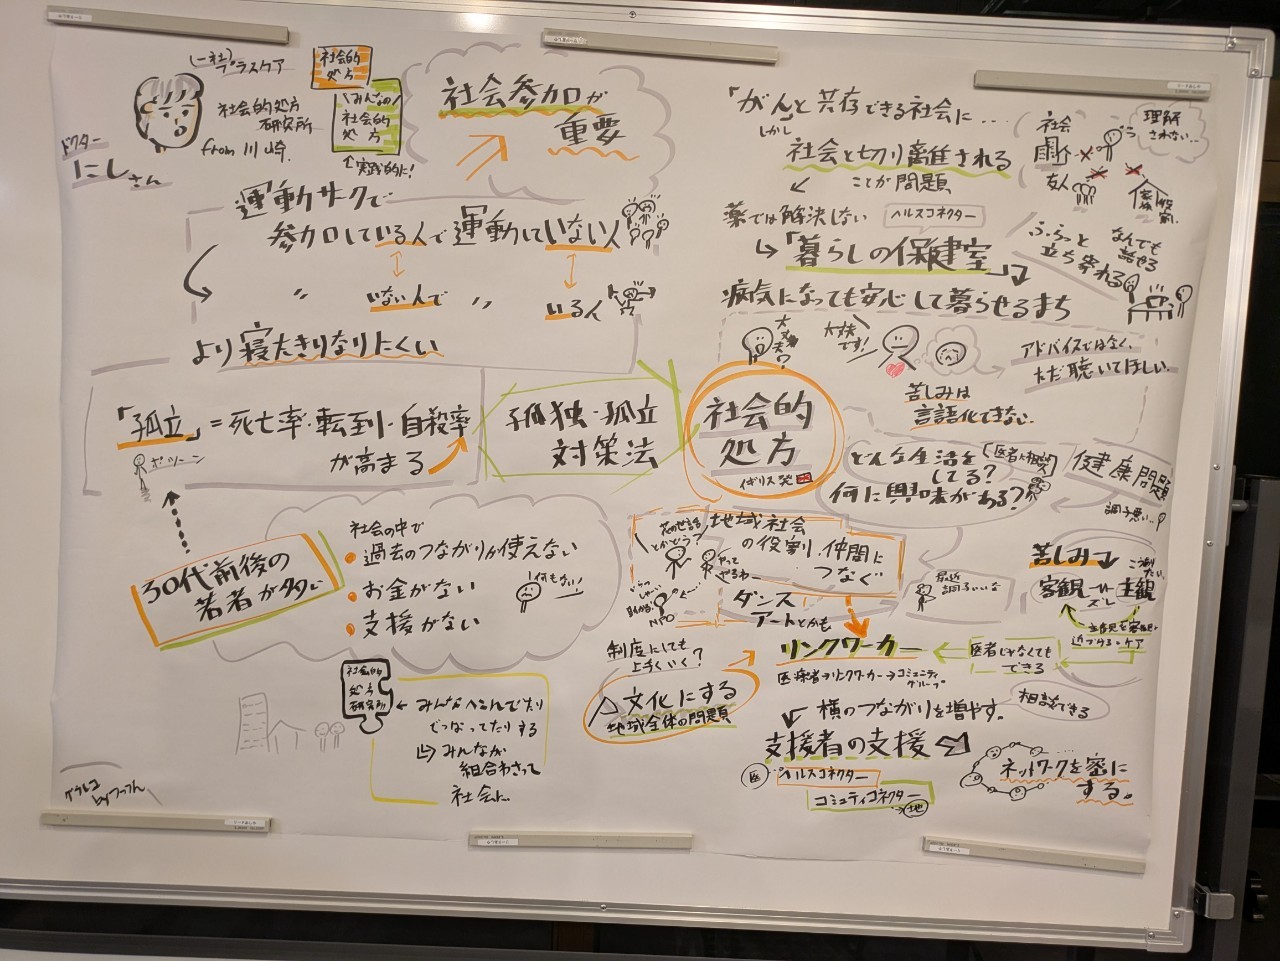 (一社)プラスケア
社会的処方
研究所
from 川崎.
ドクター
にしさん
社会的
処方
\みんなの/
社会的
処方
実践的に!
社会参加が
重要
運動サークで
参加している人で運動していない人
〃 いない人で 〃 いる人
より寝たきりなりにくい
「孤立」=死亡率・転到・自殺率
が高まる
ポツーン
孤独・孤立
対策法
30代前後の
若者が多い
社会の中で
過去のつながりが使えない
お金がない
支援がない
何もない!
社会的
処方
研究所
みんなへんでたり
でっぱってたりする
みんなが
組合わさって
社会に
グラレコ
byつっつん
「がんと共存できる社会に…
しかし
社会と切り離される
ことが問題、
薬では解決しない
ヘルスコネクター
「暮らしの保健室」
病気になっても安心して暮らせるまち
社会
友人
役割
理解
されない…
ふらっと
立ち寄れる
なんでも
話せる
大丈夫?
大丈夫
です!
苦しみは
言語化できない
アドバイスではなく、
ただ聴いてほしい
社会的
処方
イギリス発
どんな生活を
してる?
何に興味がある?
健康問題
調子悪い…
地域社会
の役割・仲間に
つなぐ
花の世話
とかどう?
やって
やるわー
NPO
ダンス
アートとかも
最近
調子いいな
苦しみ
客観 ズレ 主観
主観を客観へ
近づける=ケア
リンクワーカー
医者じゃなくても
できる
医療者→リンクワーカー→コミュニティ
グループ
制度にしても
上手くいく?
文化にする
地域全体の問題
横のつながりを増やす。
相談できる
支援者の支援
医
ヘルスコネクター
コミュニティコネクター
地
ネットワークを密に
する。